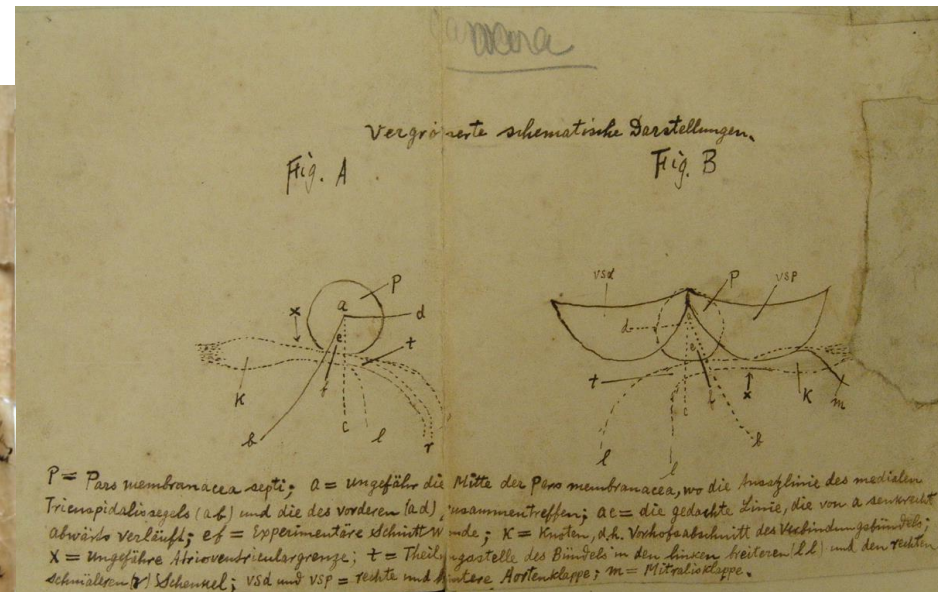 Camera
Vergrösserte schematische Darstellungen.
Fig. A
Fig. B
P
a
x
d
e
t
K
f
b
c
l
r
vsd
P
vsp
d
e
t
x
K
m
l
l
c
b
P = Pars membranacea septi; a = ungefähr die Mitte der Pars membranacea, wo die Ansatzlinie des medialen
Tricuspidalissegels (ab) und die des vorderen (ad) zusammentreffen; ac = die gedachte Linie, die von a senkrecht
abwärts verläuft; ef = Experimentäre Schnittwunde; K = Knoten, d.h. Vorhofsabschnitt des Verbindungsbündels;
X = Ungefähre Atrioventriculargrenze; t = Theilungsstelle des Bündels in den linken breiteren (l l) und den rechten
schmäleren (r) Schenkel; vsd und vsp = rechte und hintere Aortenklappe; m = Mitralisklappe.